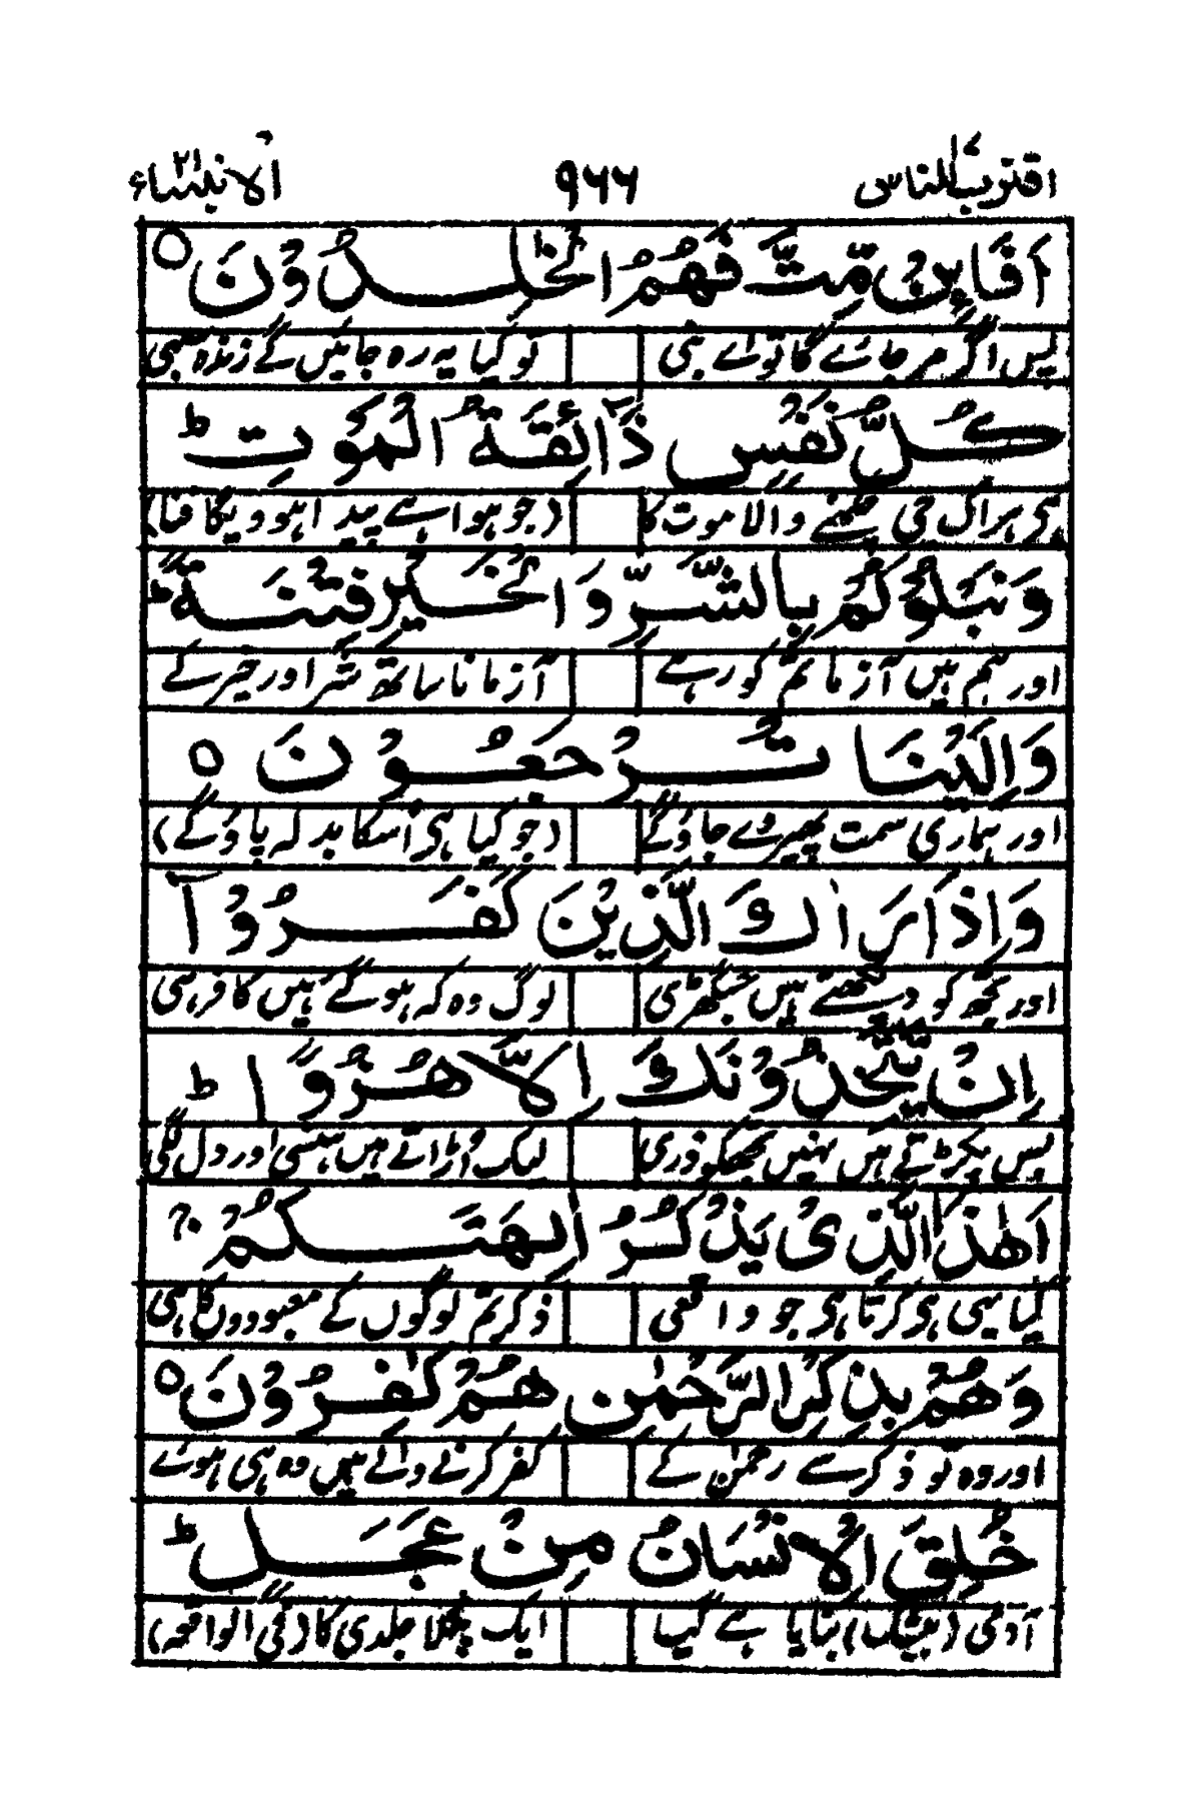 اقترب للناس ۱۷ ۹۶۶ الانبیاء ۲۱
اَفَا۠ئِنْ مِّتَّ فَهُمُ الْخٰلِدُوْنَ ○
پس اگر مر جائے گا تو اے نبی تو کیا یہ رہ جائیں گے زندہ سبھی
كُلُّ نَفْسٍ ذَآئِقَةُ الْمَوْتِ ؕ
ہی ہر اک جی چکھنے والا موت کا (جو ہوا ہے پیدا ہوویگا فنا)
وَنَبْلُوْكُمْ بِالشَّرِّ وَالْخَيْرِ فِتْنَةً ؕ
اور ہم ہیں آزما تم کو رہے آزمانا ساتھ شر اور خیر کے
وَاِلَيْنَا تُرْجَعُوْنَ ○
اور ہماری سمت پھیرے جاؤگے (جو کیا ہی اسکا بدلہ پاؤگے)
وَاِذَا رَاٰكَ الَّذِيْنَ كَفَرُوْٓا
اور تجھ کو دیکھتے ہیں جس گھڑی لوگ وہ کہ ہوگئے ہیں کافر ہی
اِنْ يَّتَّخِذُوْنَكَ اِلَّا هُزُوًا ؕ
بس پکڑتے ہیں نہیں تجھکو ذری لیک اُڑاتے ہیں ہنسی اور دل لگی
اَهٰذَا الَّذِيْ يَذْكُرُ اٰلِهَتَكُمْ ؟
کیا یہی ہی کرتا ہی جو واقعی ذکر تم لوگوں کے معبودوں کا ہی
وَهُمْ بِذِكْرِ الرَّحْمٰنِ هُمْ كٰفِرُوْنَ ○
اور وہ تو ذکر سے رحمٰن کے کفر کرنے والے ہیں وہ ہی ہوئے
خُلِقَ الْاِنْسَانُ مِنْ عَجَلٍ ؕ
آدمی (بیشک) بنایا ہے گیا ایک پتلا جلدی کا (فی الواقعہ)